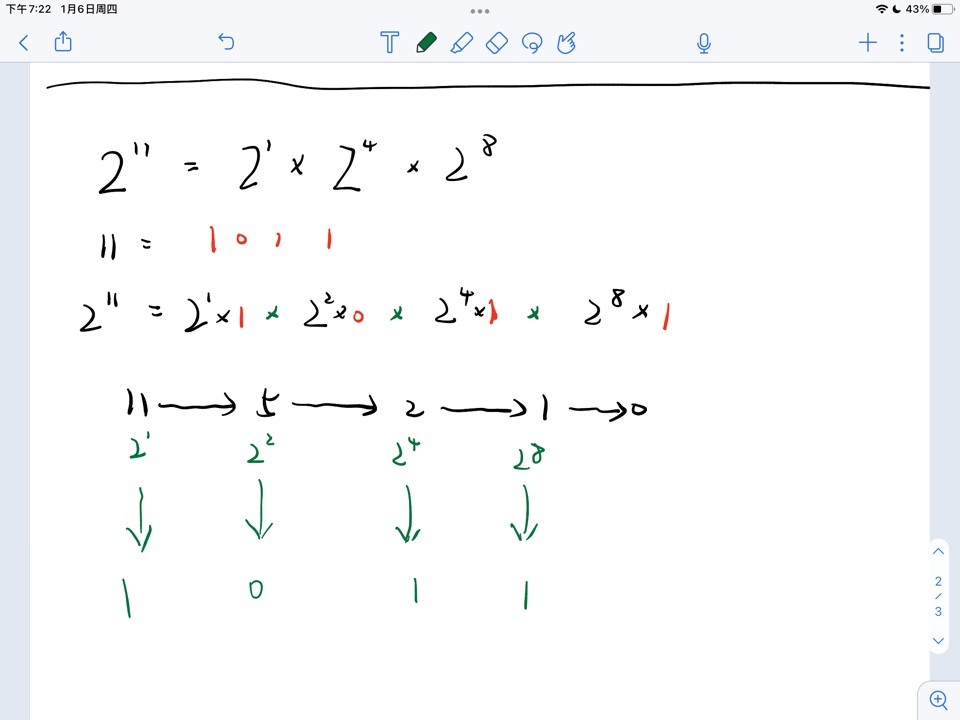 下午7:22 1月6日周四
43%
T
2¹¹ = 2¹ × 2⁴ × 2⁸
11 = 1 0 1 1
2¹¹ = 2¹×1 × 2²×0 × 2⁴×1 × 2⁸×1
11 → 5 → 2 → 1 → 0
2¹ 2² 2⁴ 2⁸
↓ ↓ ↓ ↓
1 0 1 1
2
/
3